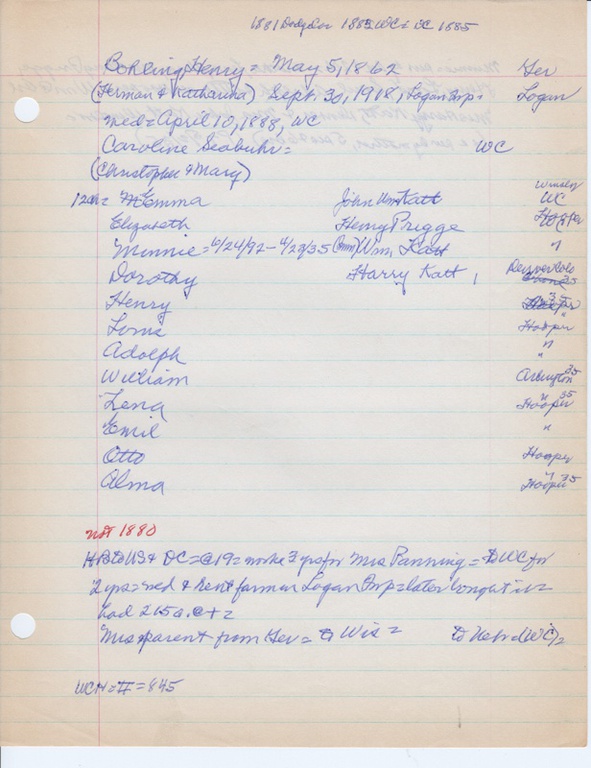 1881 Dodge Co 1883 WC & DC 1885
Bohling Henry = May 5, 1862 Ger
(Herman & Katharina) Sept. 30, 1918, Logan Twp = Logan
med = April 10, 1888, WC
Caroline Seabuhr = WC
(Christopher & Mary)
Winslow
12ch = Emma John Wm Katt WC
Elizabeth Henry Prigge Hooper
Minnie = 6/24/92 - 4/23/35 (Mrs) Wm Katt "
Dorothy Harry Katt, Denver Colo
Henry Hooper 35
Louis Hooper
Adolph "
William Arlington 35
Lena Hooper 35
Emil "
Otto Hooper
Alma Hooper 35
not 1880
HB to US & DC = @19 = works 3 yrs for Mrs Panning = to WC for
2 yrs = med & rent farm in Logan Twp = later bought it =
had 265 a. et =
Mrs parent from Ger = to Wis = to Nebr (WC) =
WCH = II = 845